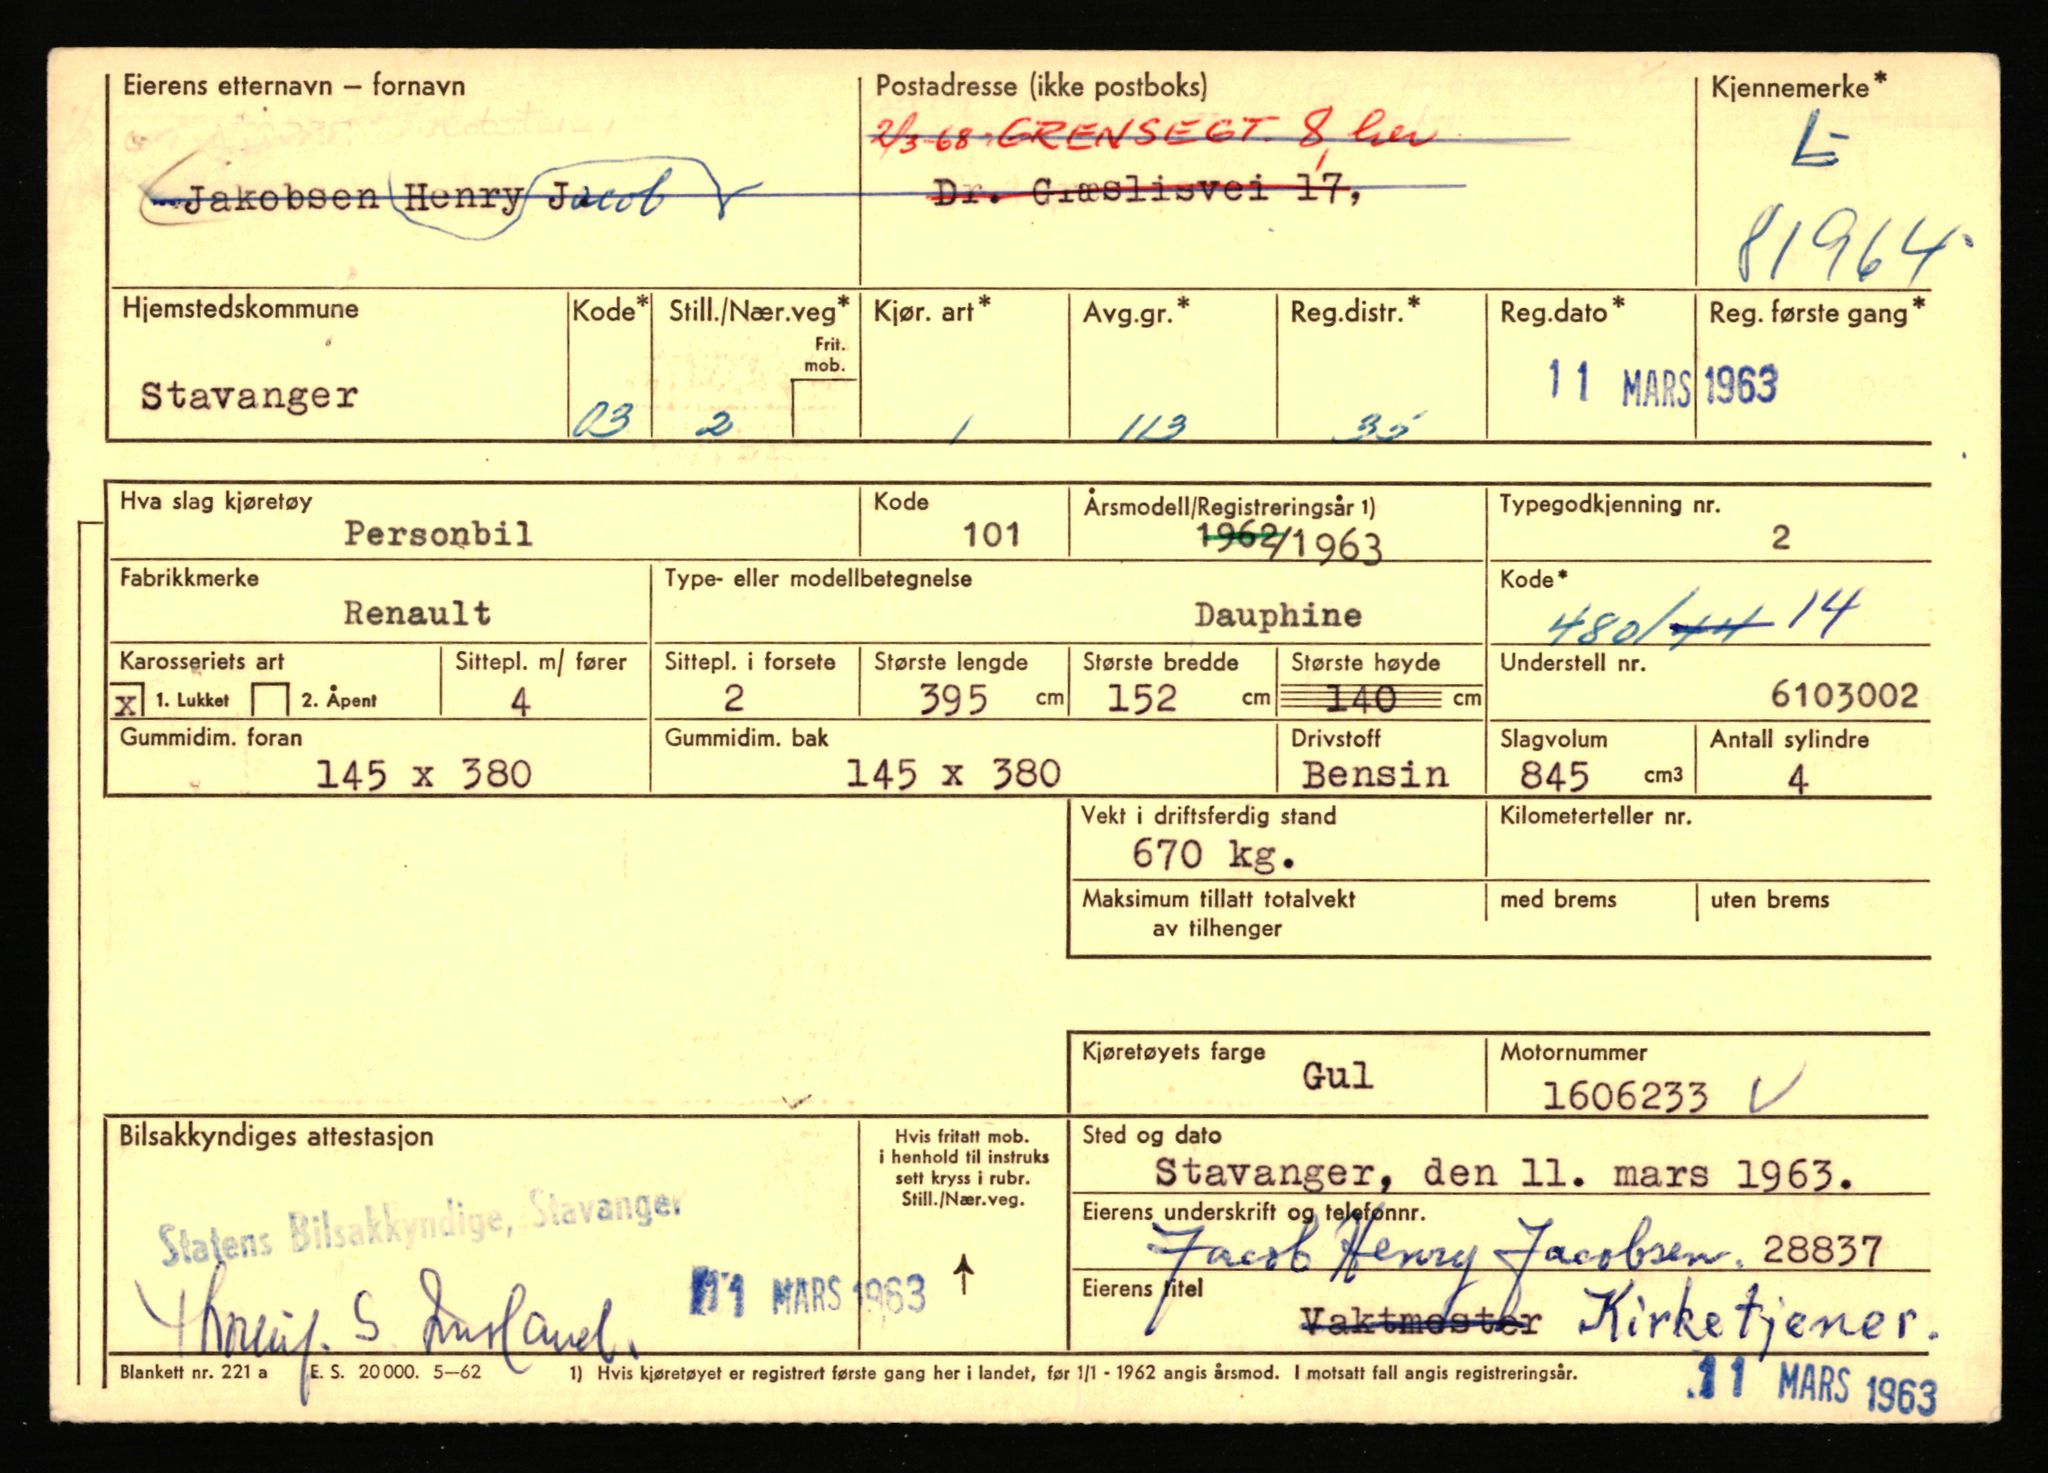 Eierens etternavn – fornavn Postadresse (ikke postboks) Kjennemerke*
2/3-68. GRENSEGT. 8, her L
Jakobsen Henry Jacob Dr. Græslisvei 17,
81964
Hjemstedskommune Kode* Still./Nær.veg* Kjør. art* Avg.gr.* Reg.distr.* Reg.dato* Reg. første gang*
Frit. mob.
Stavanger 03 2 1 113 35 11 MARS 1963
Hva slag kjøretøy Kode Årsmodell/Registreringsår 1) Typegodkjenning nr.
Personbil 101 1962/1963 2
Fabrikkmerke Type- eller modellbetegnelse Kode*
Renault Dauphine 480/44 14
Karosseriets art Sittepl. m/ fører Sittepl. i forsete Største lengde Største bredde Største høyde Understell nr.
x 1. Lukket 2. Åpent 4 2 395 cm 152 cm 140 cm 6103002
Gummidim. foran Gummidim. bak Drivstoff Slagvolum Antall sylindre
145 x 380 145 x 380 Bensin 845 cm3 4
Vekt i driftsferdig stand Kilometerteller nr.
670 kg.
Maksimum tillatt totalvekt med brems uten brems
av tilhenger
Kjøretøyets farge Motornummer
Gul 1606233
Bilsakkyndiges attestasjon Hvis fritatt mob. i henhold til instruks sett kryss i rubr. Still./Nær.veg. Sted og dato
Stavanger, den 11. mars 1963.
Statens Bilsakkyndige, Stavanger Eierens underskrift og telefonnr.
Jacob Henry Jacobsen. 28837
11 MARS 1963 Eierens titel
Vaktmester Kirketjener.
Blankett nr. 221 a E. S. 20 000. 5–62 1) Hvis kjøretøyet er registrert første gang her i landet, før 1/1 - 1962 angis årsmod. I motsatt fall angis registreringsår.
11 MARS 1963